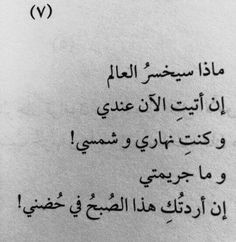 (٧)
ماذا سيخسرُ العالم
إن أتيتِ الآن عندي
و كنتِ نهاري و شمسي!
و ما جريمتي
إن أردتُكِ هذا الصُبحُ في حُضني!